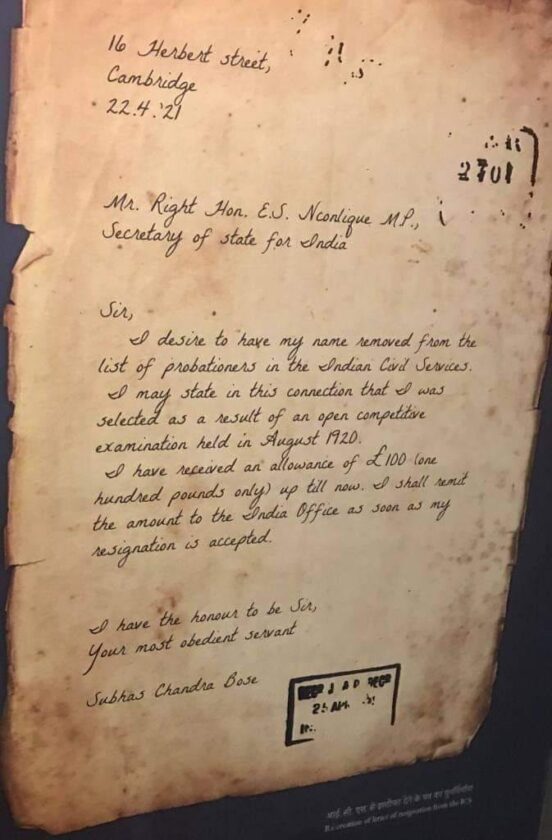 16 Herbert street,
Cambridge
22.4.'21
2701
Mr. Right Hon. E.S. Nconlique M.P.,
Secretary of state for India
Sir,
I desire to have my name removed from the
list of probationers in the Indian Civil Services.
I may state in this connection that I was
selected as a result of an open competitive
examination held in August 1920.
I have received an allowance of £100 (one
hundred pounds only) up till now. I shall remit
the amount to the India Office as soon as my
resignation is accepted.
I have the honour to be Sir,
Your most obedient servant
Subhas Chandra Bose
आई. सी. एस. से इस्तीफा देने के पत्र का पुनर्निर्माण
Re creation of letter of resignation from the ICS